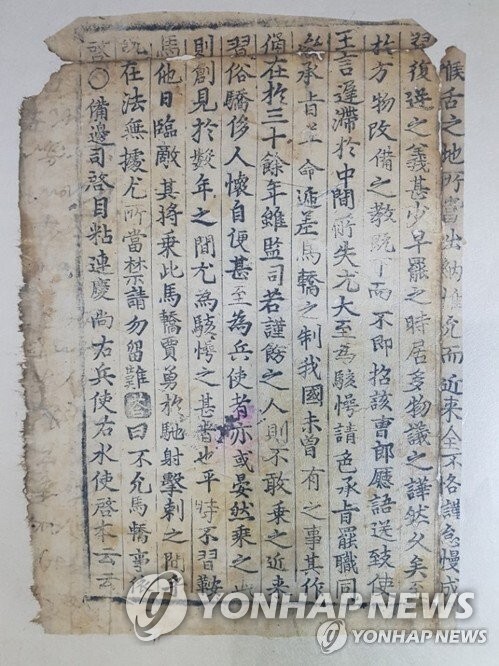 喉舌之地所當出納惟允而近来全不恪謹怠慢成
習復逆之義甚少早罷之時居多物議之譁然久矣至
於方物改備之教既下而不即招該曹郎廳語送致使
王言遲滯於中間所失尤大至為駭愕請色承旨罷職同
叅承旨並命遞差馬轎之制我國未曾有之事其作
俑在於三十餘年雖監司若謹飭之人則不敢乗之近来
習俗驕侈人懷自便甚至為兵使者亦或晏然乗之
則創見於數年之間尤為駭愕之甚者也平時不習鞍
馬他日臨敵其将乗此馬轎賈勇於馳射擊刺之間
況在法無據尤所當禁請勿留難答曰不允馬轎事依
啓○備邊司啓目粘連慶尚右兵使右水使啓本云云
YONHAP NEWS
YONHAP NEWS